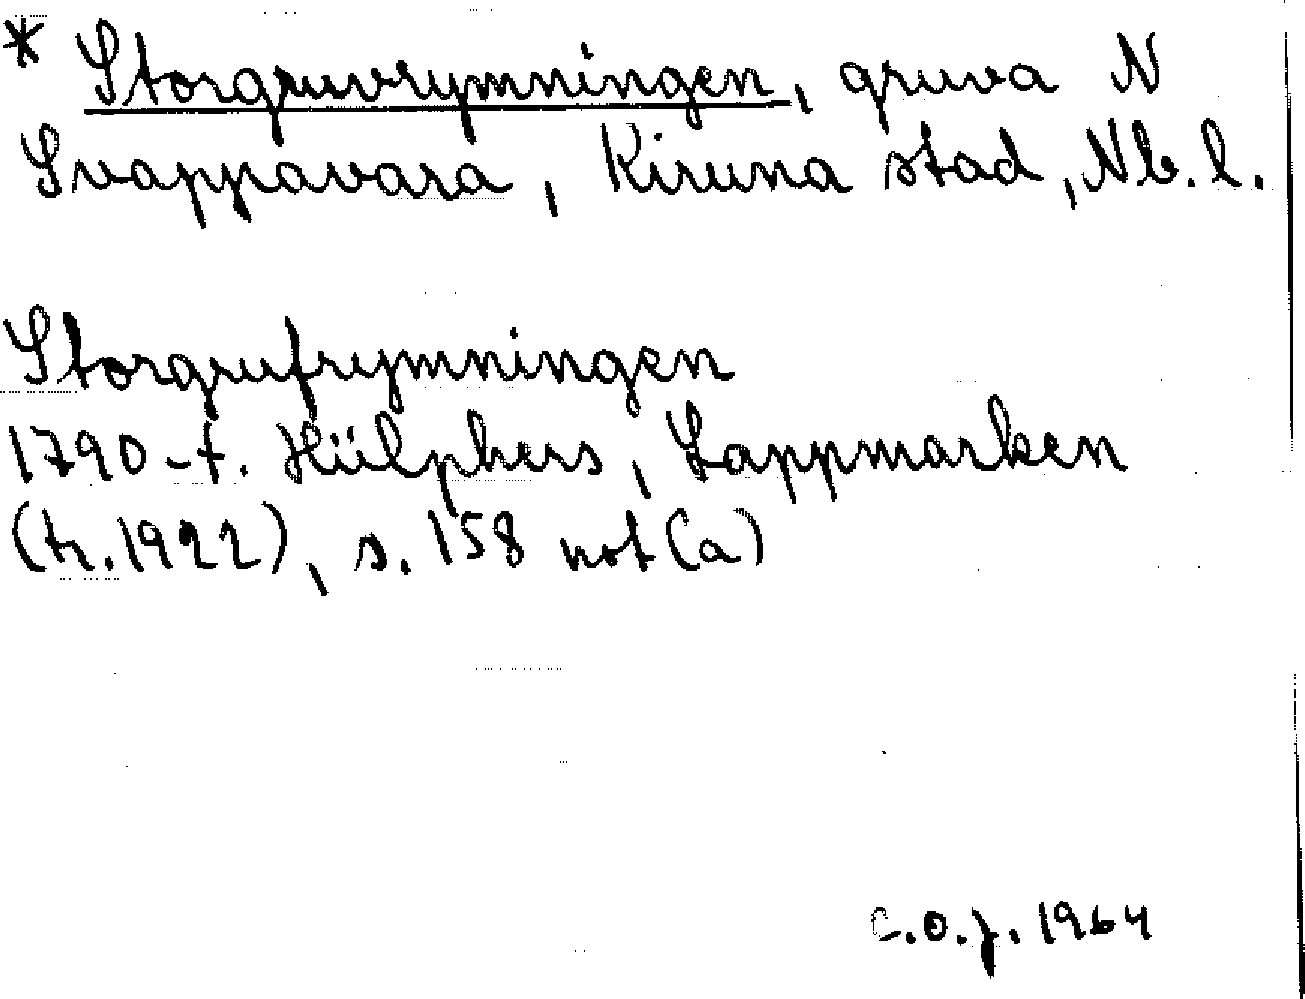 * Storgruvrymningen, gruva N
Svappavara, Kiruna stad, Nb.l.
Storgrufrymningen
1790-t. Hülphers, Lappmarken
(tr. 1922), s. 158 not (a)
C.O.J. 1964